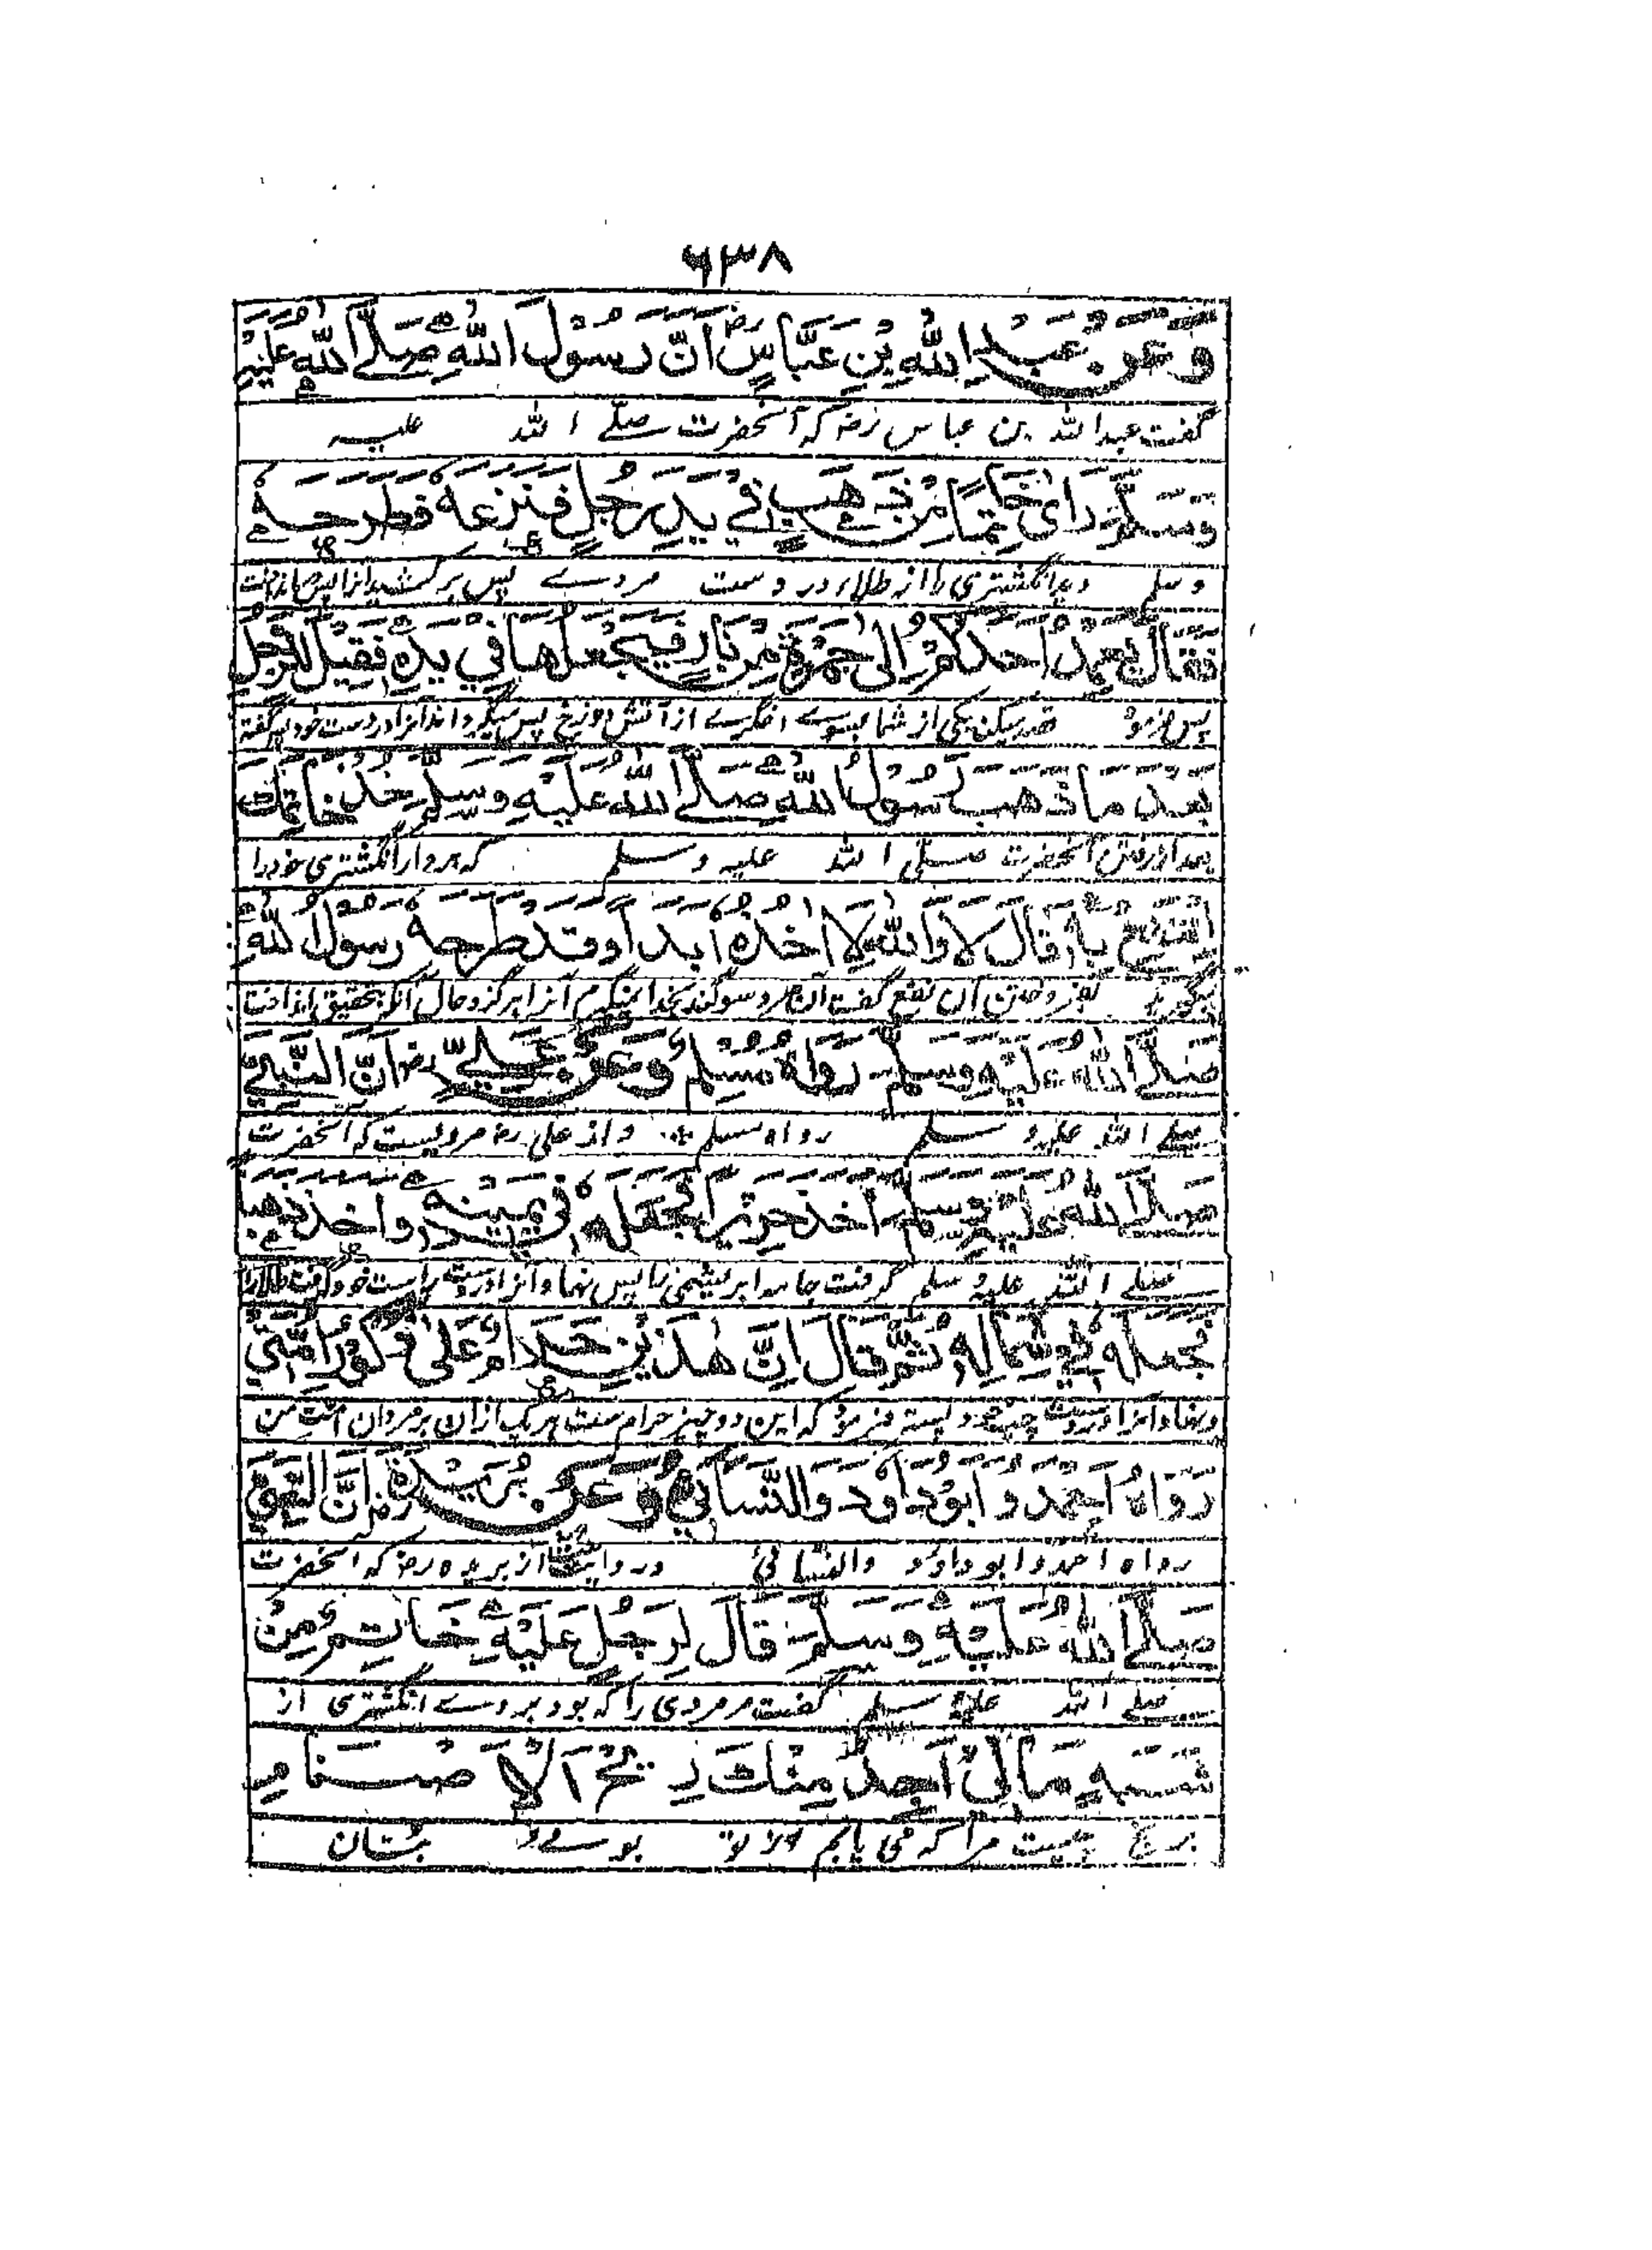 ۶۳۸
وَعَنْ عَبْدِ اللّٰهِ بْنِ عَبَّاسٍ رض اَنَّ رَسُوْلَ اللّٰهِ صَلَّے اللّٰهُ عَلَيْهِ
گفت عبد اللّٰه بن عباس رض که آنحضرت صلّے اللّٰه علیه
وَسَلَّمَ رَاٰى خَاتَمًا مِّنْ ذَهَبٍ فِيْ يَدِ رَجُلٍ فَنَزَعَهٗ فَطَرَحَهٗ
وسلم دید انگشتری را از طلاء در دست مردے پس برکشید آنرا پس انداخت
فَقَالَ يَعْمِدُ اَحَدُكُمْ اِلٰى جَمْرَةٍ مِّنْ نَّارٍ فَيَجْعَلُهَا فِيْ يَدِهٖ فَقِيْلَ لِلرَّجُلِ
پس فرمود قصد میکند یکی از شما بسوے اخگرے از آتش دوزخ پس میگرداند آنرا در دست خود پس گفته
بَعْدَ مَا ذَهَبَ رَسُوْلُ اللّٰهِ صَلَّے اللّٰهُ عَلَيْهِ وَسَلَّمَ خُذْ خَاتَمَكَ
بعد از رفتن آنحضرت صلّی اللّٰه علیه وسلم که بردار انگشتری خود را
اِنْتَفِعْ بِهٖ قَالَ لَا وَاللّٰهِ لَا اٰخُذُهٗ اَبَدًا وَقَدْ طَرَحَهٗ رَسُوْلُ اللّٰهِ
بفروختن آن نفع گفت آن مرد سوگند بخدا نمیگیرم آنرا هرگز و حال آنکه بتحقیق انداخت
صَلَّے اللّٰهُ عَلَيْهِ وَسَلَّمَ رَوَاهُ مُسْلِمٌ وَعَنْ عَلِيٍّ رض اَنَّ النَّبِيَّ
صلے اللّٰه علیه و سلم رواه مسلم و از علی رض مرویست که آنحضرت
صَلَّے اللّٰهُ عَلَيْهِ وَسَلَّمَ اَخَذَ حَرِيْرًا فَجَعَلَهٗ فِيْ يَمِيْنِهٖ وَاَخَذَ ذَهَبًا
صلے اللّٰه علیه و سلم گرفت جامه ابریشمی را پس نهاد آنرا در دست راست خود و گرفت طلا را
فَجَعَلَهٗ فِيْ شِمَالِهٖ ثُمَّ قَالَ اِنَّ هٰذَيْنِ حَرَامٌ عَلٰى ذُكُوْرِ اُمَّتِيْ
و نهاد آنرا در دست چپ خود پستر فرمود که این دو چیز حرام ست هر یک از آن بر مردان امت من
رَوَاهُ اَحْمَدُ وَاَبُوْدَاوٗدَ وَالنَّسَائِيُّ وَعَنْ بُرَيْدَةَ رض اَنَّ النَّبِيَّ
رواه احمد و ابو داؤد والنسائی و روایت از بریده رض که آنحضرت
صَلَّے اللّٰهُ عَلَيْهِ وَسَلَّمَ قَالَ لِرَجُلٍ عَلَيْهِ خَاتَمٌ مِّنْ
صلے اللّٰه علیه و سلم گفت مر مردی را که بود بر وے انگشتری از
شَبَهٍ مَا لِيْ اَجِدُ مِنْكَ رِيْحَ الْاَصْنَامِ
برنج چیست مرا که می یابم از تو بوے بتان